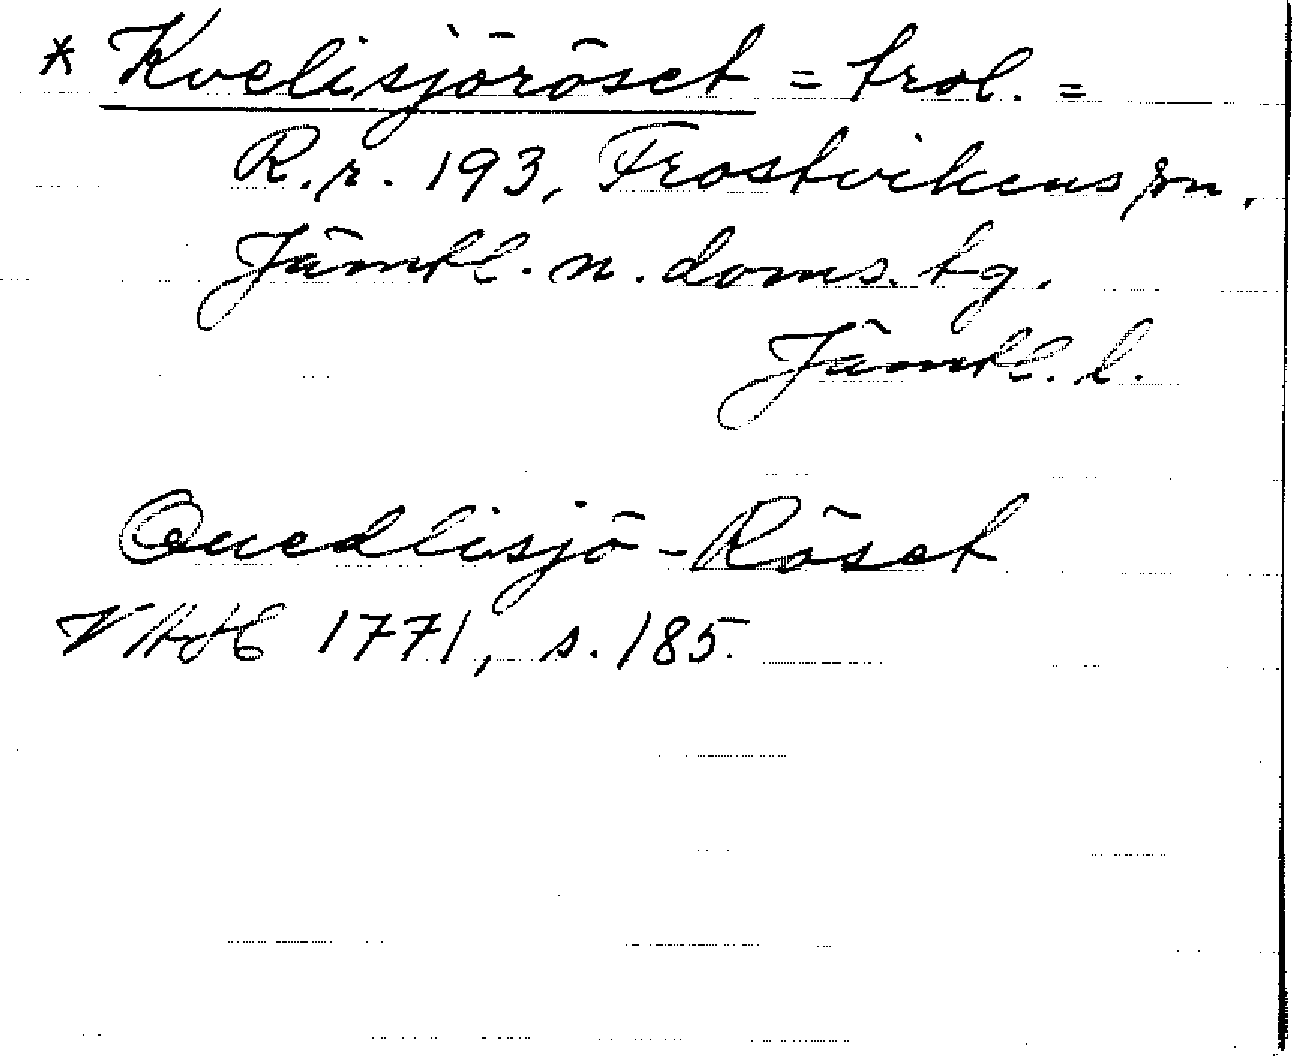 * Kvelisjöröset = trol. =
R.r. 193, Frostvikens sn,
Jämtl. n. doms. tg.
Jämtl. l.
Quedlisjö-Röset
VHAH 1771, s. 185.